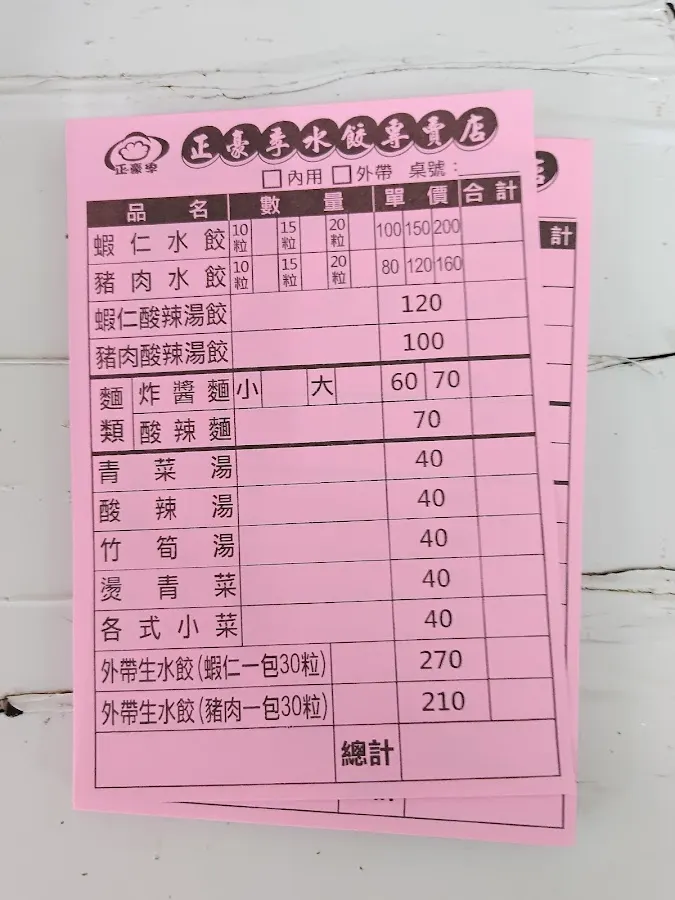 正豪季水餃專賣店
正豪季
□內用 □外帶 桌號：
品名 數量 單價 合計
蝦仁水餃 10粒 15粒 20粒 100 150 200
豬肉水餃 10粒 15粒 20粒 80 120 160
蝦仁酸辣湯餃 120
豬肉酸辣湯餃 100
麵類 炸醬麵 小 大 60 70
酸辣麵 70
青菜湯 40
酸辣湯 40
竹筍湯 40
燙青菜 40
各式小菜 40
外帶生水餃(蝦仁一包30粒) 270
外帶生水餃(豬肉一包30粒) 210
總計
店
計